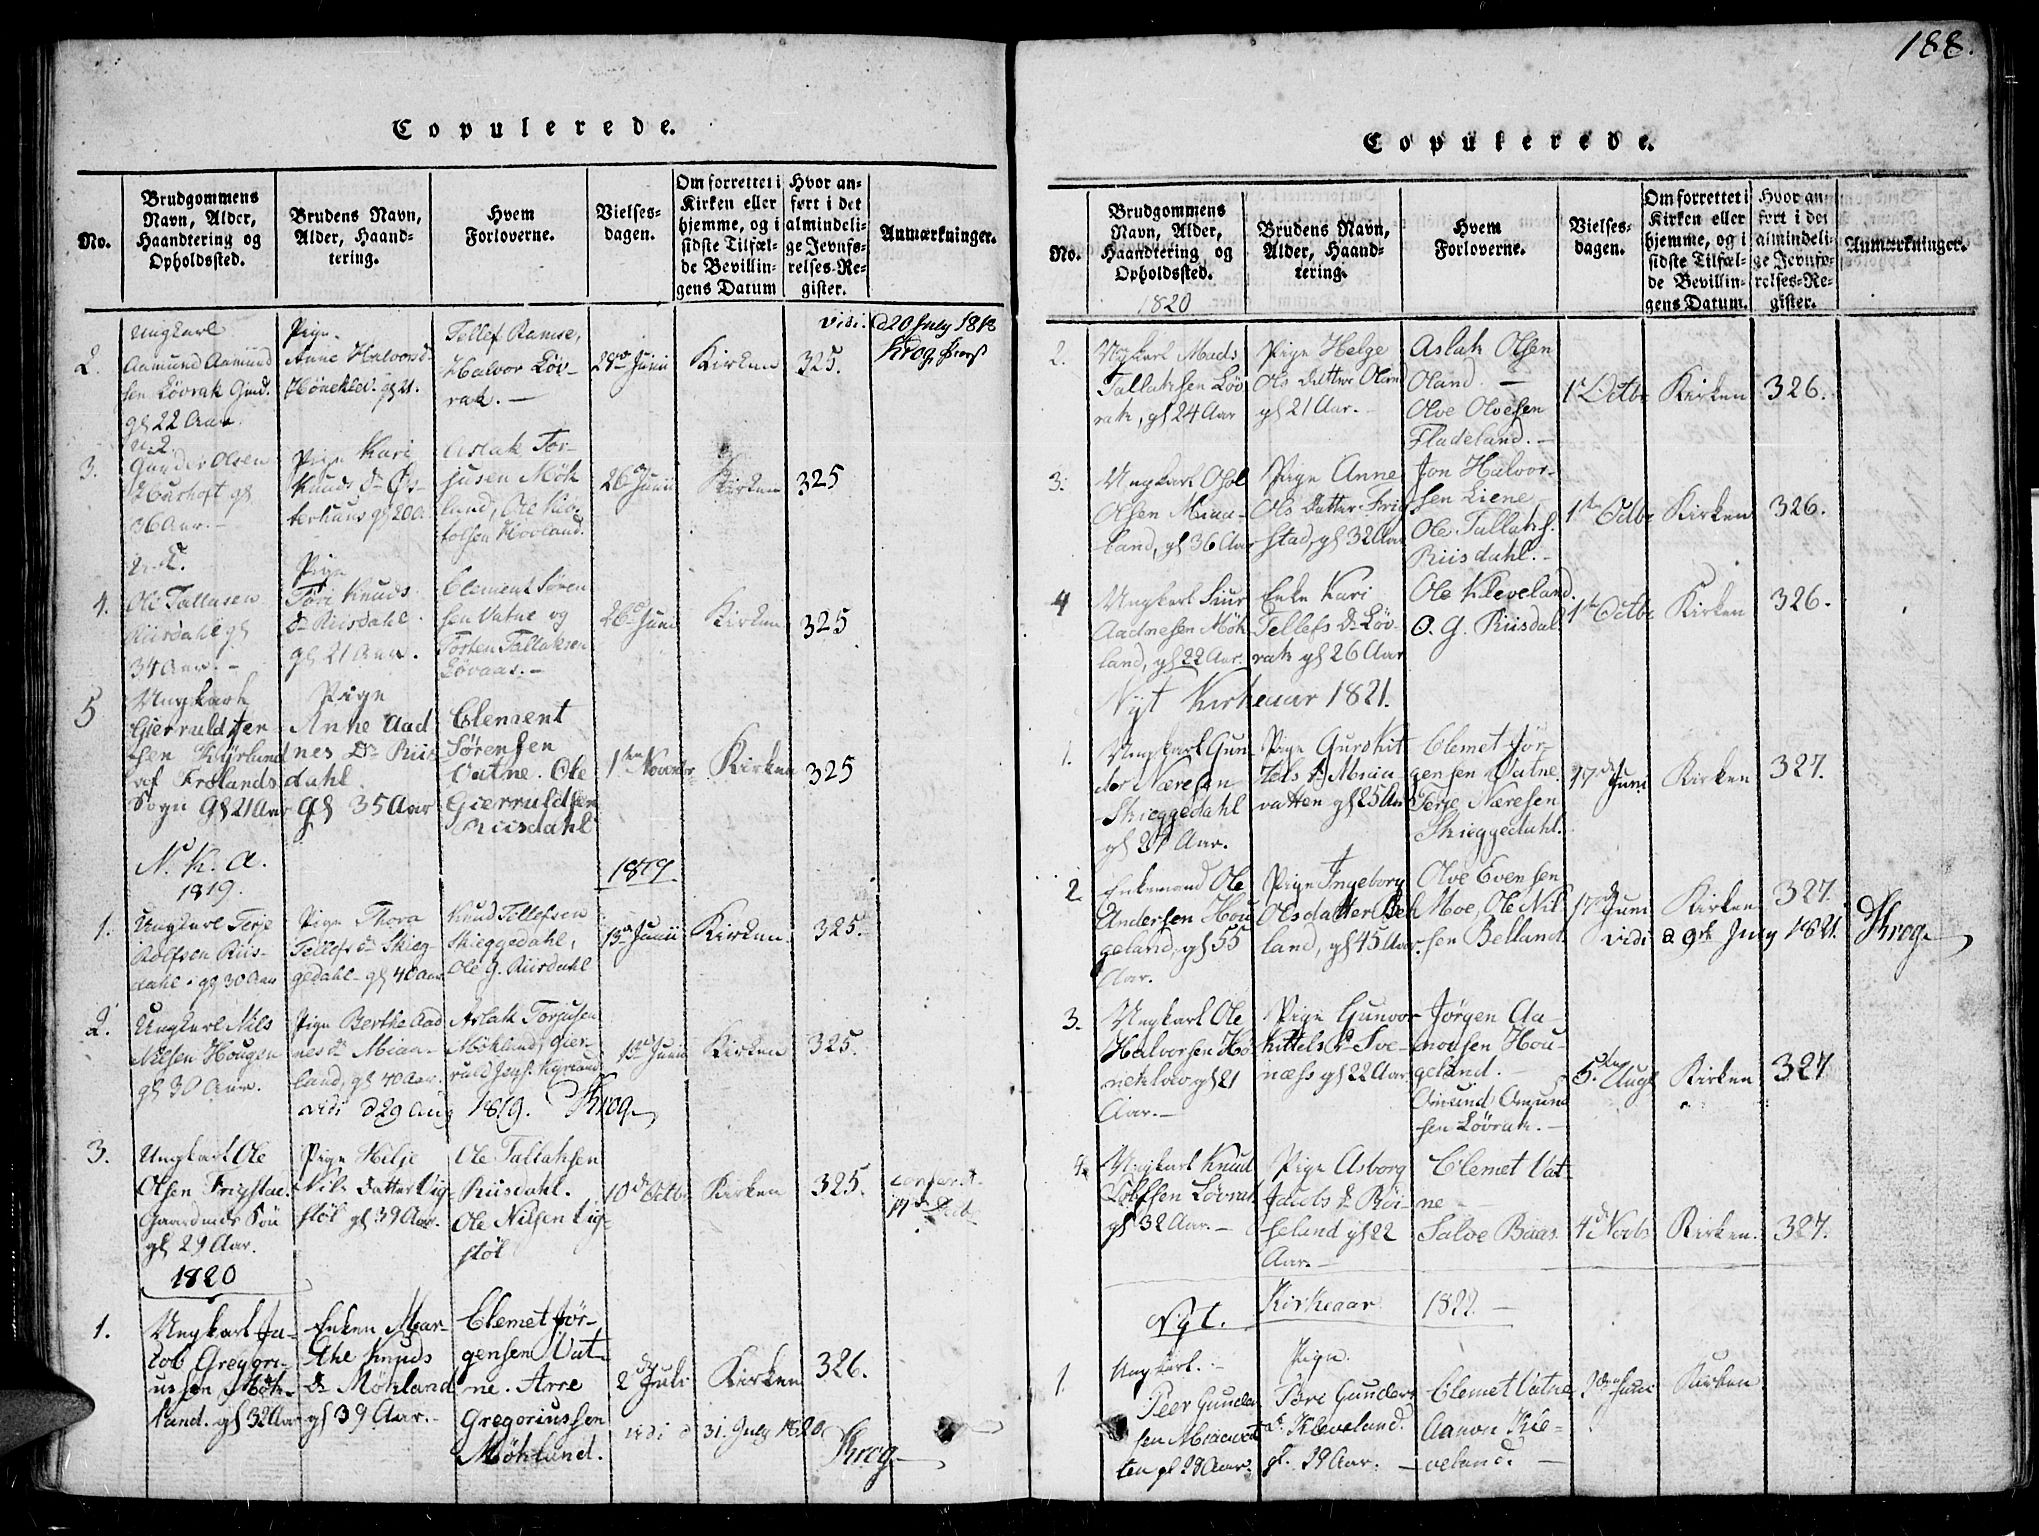 188.
Copulerede.
No.
Brudgommens Navn, Alder, Haandtering og Opholdssted.
Brudens Navn, Alder, Haandtering.
Hvem Forloverne.
Vielses-dagen.
Om forrettet i Kirken eller hjemme, og i sidste Tilfælde Bevillingens Datum
Hvor anført i det almindelige Jevnførelses-Register.
Anmærkninger.
vidi. d 20 July 1818
Krog Provst
2.
Ungkarl
Aamund Aamund
sen Løvrak Gmd.
gl 22 Aar.
Pige
Anne Halvorsd
Høneklev. gl 21.
Tellef Ramse,
Halvor Løv-
rak. —
Kirken
325.
3.
Gunder Olsen
gl
36 Aar. —
Pige Kari
Knuds Dr Øs-
terhuus gl 20 A
Aslak Tor-
jusen Møk
land, Ole Kiø-
tolsen Hovland.
26d Junii
Kirken
325
4.
Ole Tallusen
Riisdahl gl
34 Aar. —
Pige
Tøri Knuds
Dr Riisdahl.
gl 21 Aar.
Clement Søren
sen Vatne og
Torsten Tallaksen
Løvaas. —
26d Juni
Kirken
325
5
Ungkarl
Gierruld
sen Kyrlund
af Frolands
Sogn gl 21 Aar
Pige
Anne Aad
nes Dr Riis
dahl.
gl 35 Aar
Clement
Sørensen
Vatne. Ole
Gierruldsen
Riisdahl
1ste Novembr
Kirken
325
N. K. A.
1819.
1819.
1.
Ungkarl Terje
Rolfson Riis-
dahl. gl 30 Aar
Pige Thora
Tellefs dr Skieg
gedahl - gl 40 Aar
Knud Tellefsen
Skieggedahl,
Ole G. Riisdahl
13d Junii
Kirken
325.
2.
Ungkarl Nils
Nilsen Hougen
gl 30 Aar.
Pige Berthe Aad
nes dr Miaa-
land, gl 40 Aar.
Aslak Torjusen
Møkland, Gier-
ruld
13d Junii
Kirken
325.
vidi d 29 Aug 1819. Krog
3.
Ungkarl Ole
Olsen Frigstad
Gaardmds Søn
gl 29 Aar.
Pige Hilje
Nils Datter Lig
støl gl 39 Aar.
Ole Tallaksen
Riisdahl.
Ole Nilsen Lig-
støl
10d Octbr
Kirken
325.
1820
1.
Ungkarl Ja-
cob Gregori-
ussen Møk-
land. gl 32 Aar
Enken Mar-
the Knuds
dr Møkland
gl 39 Aar. —
Clemet Jør-
gensen Vat-
ne. Arre
Gregoriussen
Møkland.
2d Juli
Kirken
326.
vidi d 31. July 1820
Krog
Copulerede.
No.
Brudgommens Navn, Alder, Haandtering og Opholdssted.
Brudens Navn, Alder, Haandtering.
Hvem Forloverne.
Vielses-dagen.
Om forrettet i Kirken eller hjemme, og i sidste Tilfælde Bevillingens Datum.
Hvor anført i det almindelige Jevnførelses-Register.
Anmærkninger.
1820
2.
Ungkarl Mads
Tallaksen Løv
rak, gl 24 Aar
Pige Helge
Ols Datter Oland
gl 21 Aar. —
Aslak Olsen
Oland. —
Olve Olvesen
Fladeland. —
1ste Octbr
Kirken
326.
3.
Ungkarl
Olsen Miaa-
land, gl 36 Aar
Pige Anne
Ols Datter Frig
stad, gl 32 Aar
Jon Halvor-
sen Liene
Ole Tallaks.
Riisdahl. —
1ste Octbr
Kirken
326.
4
Ungkarl Siur
Aadnesen Møk
land, gl 22 Aar.
Enke Kari
Tellefs Dr Løv-
rak gl 26 Aar
Ole Kleveland.
O. G. Riisdal.
1ste Octbr
Kirken
326.
Nyt Kirkeaar 1821.
1.
Ungkarl Gun
der Næresen
Skieggedahl
gl 27 Aar.
Pige Guro Kit
tels Dr Miaa
vatten gl 25 Aar
Clemet Jør-
gensen Vatne.
Terje Næresen
Skieggedahl.
17d Juni
Kirken
327.
2
Enkemand Ole
Andersen Hou
geland, gl 55
Aar.
Pige Ingeborg
Olsdatter Bek
land, gl 45 Aar.
Olve Evensen
Moe, Ole Nil-
sen Belland.
17d Juni
Kirken
327.
vidi d 9de July 1821. Krog
3.
Ungkarl Ole
Halvorsen Hø
neklev, gl 21
Aar. —
Pige Gunvor
Kittels Dr Sve-
næss gl 22 Aar
Jørgen Aa-
nonsen Hou-
geland. —
Omund Omund
sen Løvrak. —
5. Augl
Kirken
327
4.
Ungkarl Knud
Løvrak
gl 32 Aar. —
Pige Asborg
Jacobs Dr Røi-
seland gl 22
Aar. —
Clemet Vat-
ne —
Salve Baas.
4d Novbr
Kirken.
327.
Nyt. Kirkeaar 1822. —
1.
Ungkarl. —
Peer Gunder
sen Miaavat
ten gl 29 Aar.
Pige.
Tøre Gunders
d. Kleveland.
gl. 29 Aar. —
Clemet Vatne
Aanon Kle-
veland. —
Juni
Kirken